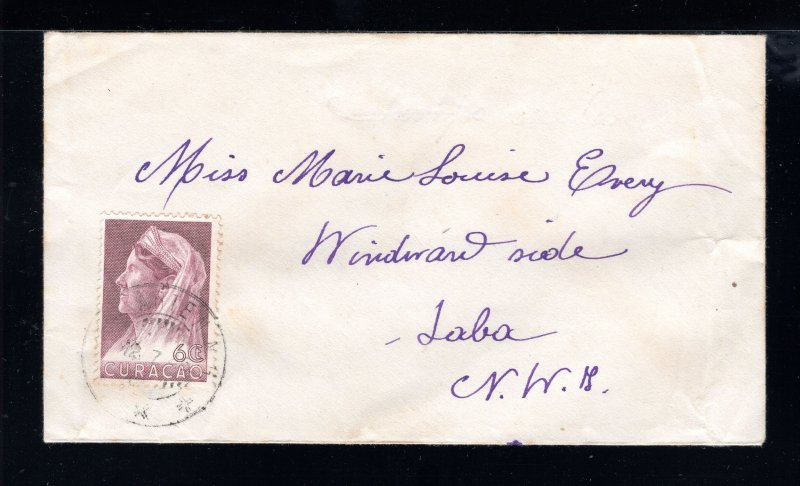 Miss Marie Louise Every
Windward side
Saba
N.W.I.
6 Ct
CURAÇAO